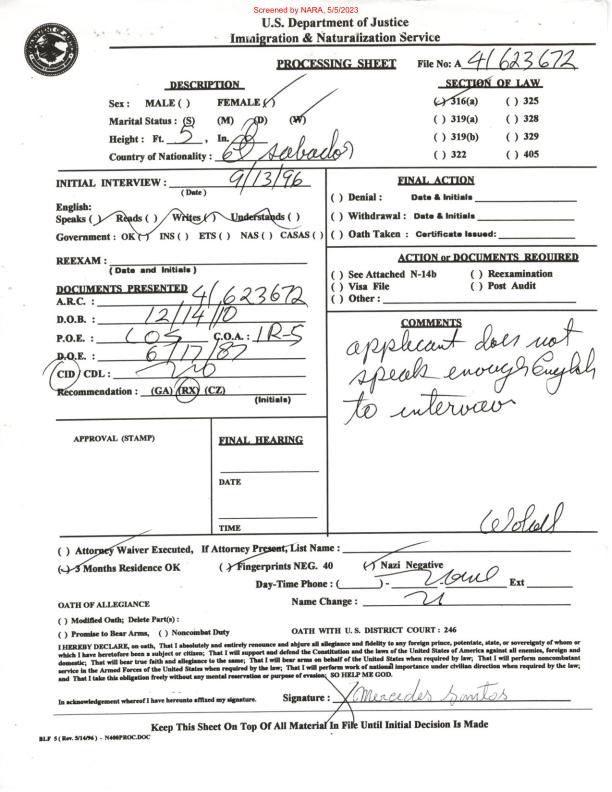 Screened by NARA, 5/5/2023
U.S. Department of Justice
Immigration & Naturalization Service
PROCESSING SHEET File No: A 41 623 672
DESCRIPTION SECTION OF LAW
Sex : MALE ( ) FEMALE (✓) (✓) 316(a) ( ) 325
Marital Status : (S) (M) (D) (W) ( ) 319(a) ( ) 328
Height : Ft. 5 , In. 0 ( ) 319(b) ( ) 329
Country of Nationality : El Salvador ( ) 322 ( ) 405
INITIAL INTERVIEW : 9/13/96
(Date)
English:
Speaks ( ) Reads ( ) Writes ( ) Understands ( )
Government : OK (✓) INS ( ) ETS ( ) NAS ( ) CASAS ( )
REEXAM :
(Date and Initials)
DOCUMENTS PRESENTED
A.R.C. : 41 623672
D.O.B. : 12/14/10
P.O.E. : LOS C.O.A. : IR-5
D.O.E. : 6/17/87
CID / CDL :
Recommendation : (GA) (RX) (CZ)
(Initials)
FINAL ACTION
( ) Denial : Date & Initials
( ) Withdrawal : Date & Initials
( ) Oath Taken : Certificate Issued:
ACTION or DOCUMENTS REQUIRED
( ) See Attached N-14b ( ) Reexamination
( ) Visa File ( ) Post Audit
( ) Other :
COMMENTS
applicant does not
speak enough English
to interview
APPROVAL (STAMP) FINAL HEARING
DATE
TIME
( ) Attorney Waiver Executed, If Attorney Present, List Name :
(✓) 3 Months Residence OK (✓) Fingerprints NEG. 40 (✓) Nazi Negative
Day-Time Phone : ( ) - Ext
OATH OF ALLEGIANCE Name Change :
( ) Modified Oath; Delete Part(s) :
( ) Promise to Bear Arms, ( ) Noncombat Duty OATH WITH U. S. DISTRICT COURT : 246
I HEREBY DECLARE, on oath, That I absolutely and entirely renounce and abjure all allegiance and fidelity to any foreign prince, potentate, state, or sovereignty of whom or
which I have heretofore been a subject or citizen; That I will support and defend the Constitution and the laws of the United States of America against all enemies, foreign and
domestic; That will bear true faith and allegiance to the same; That I will bear arms on behalf of the United States when required by law; That I will perform noncombatant
service in the Armed Forces of the United States when required by the law; That I will perform work of national importance under civilian direction when required by the law;
and That I take this obligation freely without any mental reservation or purpose of evasion; SO HELP ME GOD.
In acknowledgement whereof I have hereunto affixed my signature. Signature : X Mercedes Santos
Keep This Sheet On Top Of All Material In File Until Initial Decision Is Made
BLF 5 ( Rev. 5/14/96 ) - N400PROC.DOC